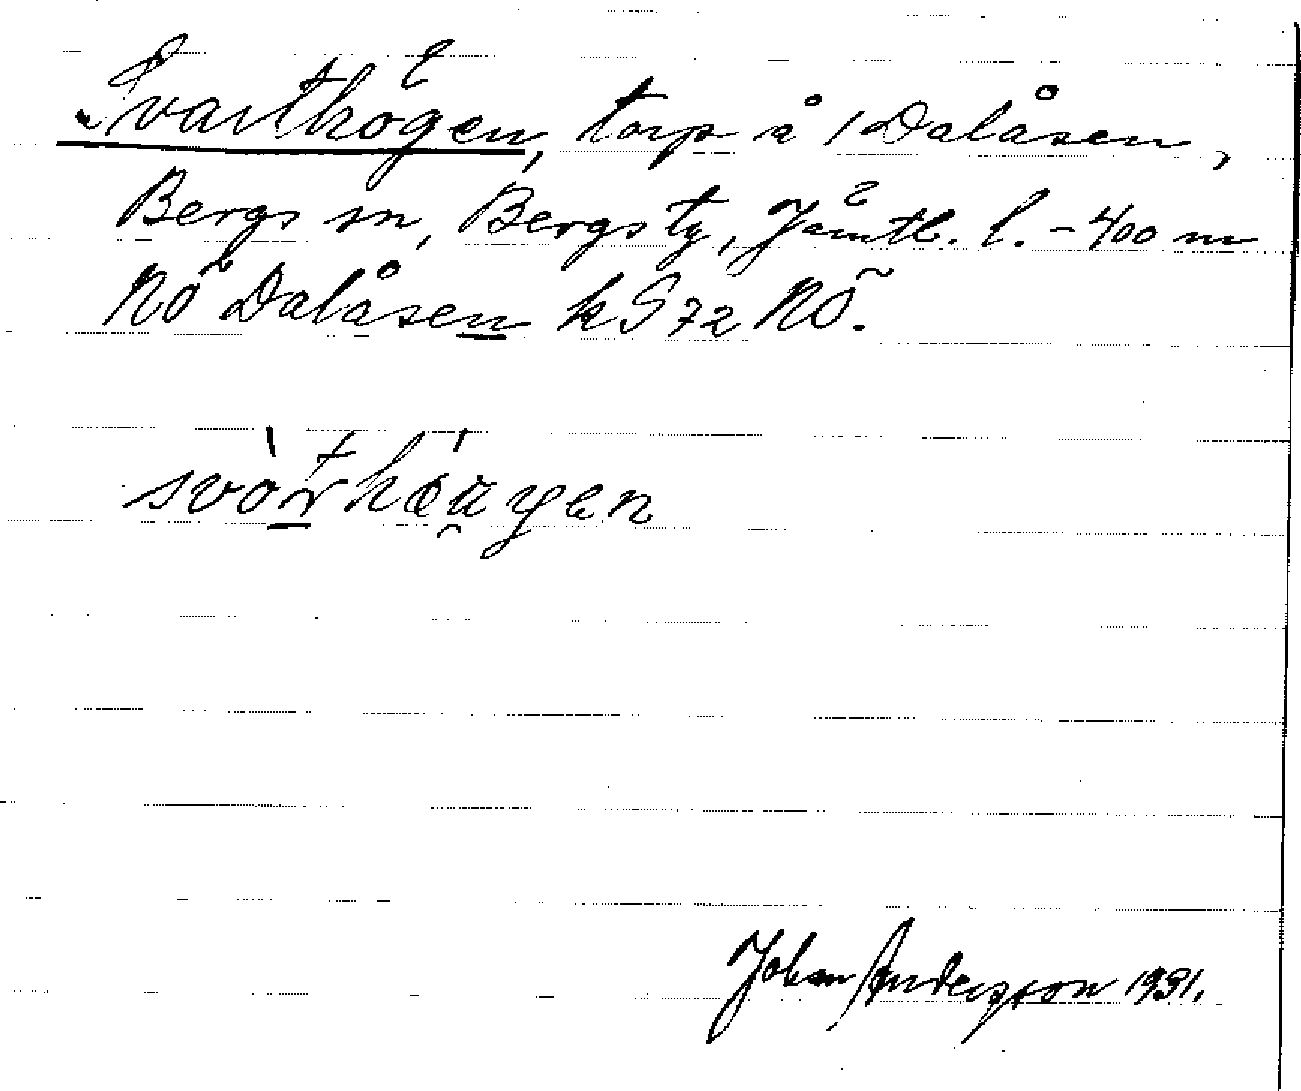 Svarthögen, torp å 1 Dalåsen,
Bergs sn, Bergs tg, Jämtl. l. - 400 m
NÖ Dalåsen k S 72 NÖ.
svòrthäugen
Johan Andersson 1931.